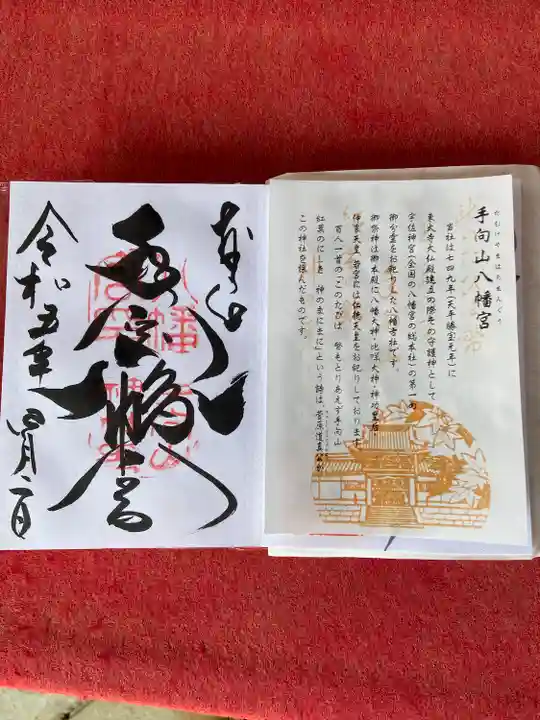 たむけやまはちまんぐう
手向山八幡宮
当社は七四九年(天平勝宝元年)に
東大寺大仏殿建立の際その守護神として
宇佐神宮(全国の八幡宮の総本社)の第一の
御分霊をお祀りした八幡古社です。
御祭神は御本殿に八幡大神・比咩大神・神功皇后
仲哀天皇 若宮には仁徳天皇をお祀りしております。
百人一首の「このたびは 幣もとりあえず手向山
紅葉のにしき 神のまにまに」という詩は、菅原道真公が
この神社を詠んだものです。
奉拝
手向山八幡宮
令和五年 四月二日